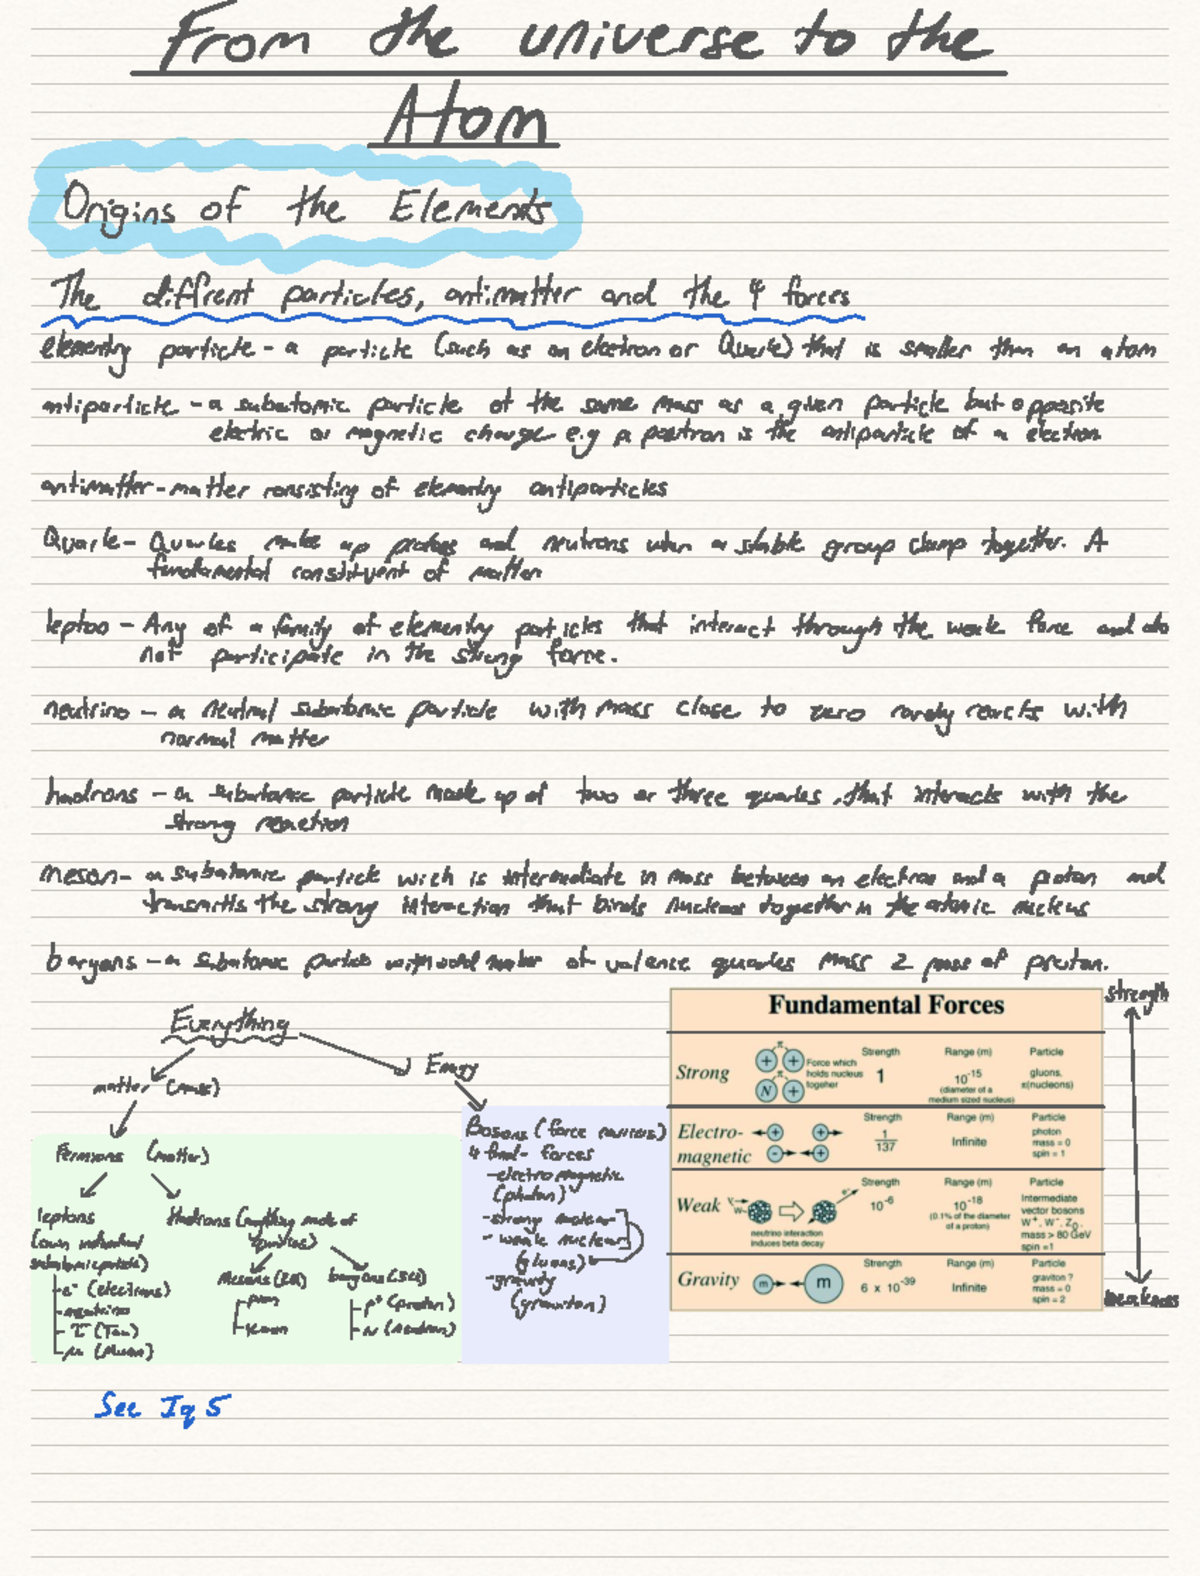 From the universe to the
Atom
Origins of the Elements
The diffrent particles, antimatter and the 4 forces
elementry particle - a particle (such as an electron or Quark) that is smaller than an atom
antiparticle - a subatomic particle of the same mass as a given particle but opposite
electric or magnetic charge e.g a positron is the antiparticle of a electron
antimatter - matter consisting of elementry antiparticles
Quark - Quarks make up protons and neutrons when a stable group clump together. A
fundamental constituent of matter
lepton - Any of a family of elementry particles that interact through the weak force and do
not participate in the strong force.
neutrino - a neutral subatomic particle with mass close to zero rarely reacts with
normal matter
hadrons - a subatomic particle made up of two or three quarks, that interacts with the
strong reaction
meson - a subatomic particle wich is intermediate in mass between an electron and a proton and
transmitts the strong interaction that binds nucleons together in the atomic nucleus
baryons - a subatomic particle with odd number of valence quarks mass ≥ mass of proton.
Everything
matter (mass)
Energy
Fermions (matter)
leptons
(own individual
subatomic particle)
- e⁻ (electrons)
- neutrino
- τ (Tau)
- μ (Muon)
Hadrons (anything made of
quarks)
Mesons (2Q)
- pion
- kaon
baryons (3Q)
- p⁺ (proton)
- N (Neutron)
Bosons (force carriers)
4 fund- forces
- electromagnetic
(photon)
- strong nuclear
- weak nuclear
(gluons)
- gravity
(graviton)
Fundamental Forces
Strong
+ +
N +
π
π
Force which
holds nucleus
together
Strength
1
Range (m)
10⁻¹⁵
(diameter of a
medium sized nucleus)
Particle
gluons,
π(nucleons)
Electro-
magnetic
+ +
- +
Strength
1/137
Range (m)
Infinite
Particle
photon
mass = 0
spin = 1
Weak
neutrino interaction
induces beta decay
Strength
10⁻⁶
Range (m)
10⁻¹⁸
(0.1% of the diameter
of a proton)
Particle
Intermediate
vector bosons
W⁺, W⁻, Z₀,
mass > 80 GeV
spin =1
Gravity
m m
Strength
6 x 10⁻³⁹
Range (m)
Infinite
Particle
graviton ?
mass = 0
spin = 2
strength
weakness
See Iq 5